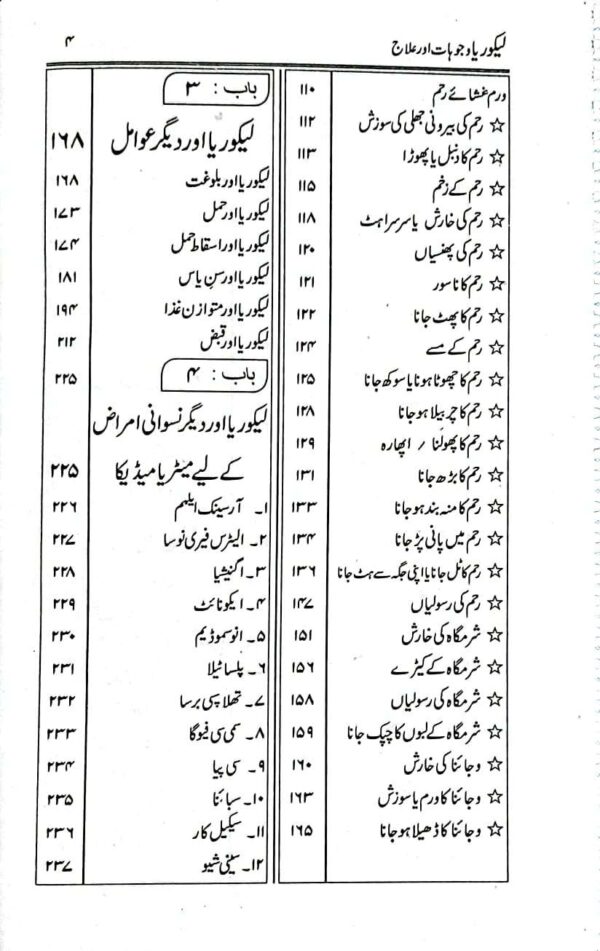 لیکوریا وجوہات اور علاج ۴
ورم غشائے رحم ۱۱۰
☆ رحم کی بیرونی جھلی کی سوزش ۱۱۲
☆ رحم کا دنبل یا پھوڑا ۱۱۳
☆ رحم کے زخم ۱۱۵
☆ رحم کی خارش یا سرسراہٹ ۱۱۸
☆ رحم کی پھنسیاں ۱۲۰
☆ رحم کا ناسور ۱۲۱
☆ رحم کا پھٹ جانا ۱۲۲
☆ رحم کے مسے ۱۲۴
☆ رحم کا چھوٹا ہونا یا سوکھ جانا ۱۲۵
☆ رحم کا چربیلا ہو جانا ۱۲۸
☆ رحم کا پھولنا / اپھارہ ۱۲۹
☆ رحم کا بڑھ جانا ۱۳۱
☆ رحم کا منہ بند ہو جانا ۱۳۳
☆ رحم میں پانی پڑ جانا ۱۳۴
☆ رحم کا ٹل جانا یا اپنی جگہ سے ہٹ جانا ۱۳۶
☆ رحم کی رسولیاں ۱۴۷
☆ شرمگاہ کی خارش ۱۵۱
☆ شرمگاہ کے کیڑے ۱۵۶
☆ شرمگاہ کی رسولیاں ۱۵۸
☆ شرمگاہ کے لبوں کا چپک جانا ۱۵۹
☆ وجائنا کی خارش ۱۶۰
☆ وجائنا کا ورم یا سوزش ۱۶۳
☆ وجائنا کا ڈھیلا ہو جانا ۱۶۵
باب : ۳
لیکوریا اور دیگر عوامل ۱۶۸
لیکوریا اور بلوغت ۱۶۸
لیکوریا اور حمل ۱۷۳
لیکوریا اور اسقاط حمل ۱۷۴
لیکوریا اور سن یاس ۱۸۱
لیکوریا اور متوازن غذا ۱۹۴
لیکوریا اور قبض ۲۱۲
باب : ۴ ۲۲۵
لیکوریا اور دیگر نسوانی امراض
کے لیے میٹریا میڈیکا ۲۲۵
۱۔ آرسینک ایلبم ۲۲۶
۲۔ الیٹرس فیری نوسا ۲۲۷
۳۔ اگنیشیا ۲۲۸
۴۔ ایکونائٹ ۲۲۹
۵۔ انوسموڈیم ۲۳۰
۶۔ پلساٹیلا ۲۳۱
۷۔ تھلاسپی برسا ۲۳۲
۸۔ سمی سی فیوگا ۲۳۳
۹۔ سی پیا ۲۳۴
۱۰۔ سبائنا ۲۳۵
۱۱۔ سیکیل کار ۲۳۶
۱۲۔ سینی شیو ۲۳۷